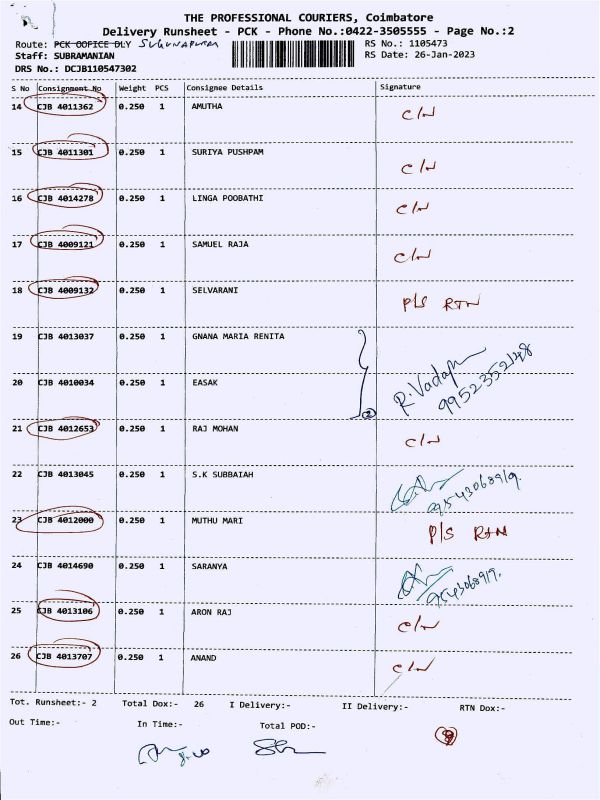 THE PROFESSIONAL COURIERS, Coimbatore
Delivery Runsheet - PCK - Phone No.:0422-3505555 - Page No.:2
Route: PCK OOFICE DLY
RS No.: 1105473
Staff: SUBRAMANIAN
RS Date: 26-Jan-2023
DRS No.: DCJB110547302
S No Consignment No Weight PCS Consignee Details Signature
14 CJB 4011362 0.250 1 AMUTHA C/N
15 CJB 4011301 0.250 1 SURIYA PUSHPAM C/N
16 CJB 4014278 0.250 1 LINGA POOBATHI C/N
17 CJB 4009121 0.250 1 SAMUEL RAJA C/N
18 CJB 4009132 0.250 1 SELVARANI P/S RTN
19 CJB 4013037 0.250 1 GNANA MARIA RENITA
20 CJB 4010034 0.250 1 EASAK
9952352148
21 CJB 4012653 0.250 1 RAJ MOHAN C/N
22 CJB 4013045 0.250 1 S.K SUBBAIAH
23 CJB 4012000 0.250 1 MUTHU MARI P/S RTN
24 CJB 4014690 0.250 1 SARANYA
25 CJB 4013106 0.250 1 ARON RAJ C/N
26 CJB 4013707 0.250 1 ANAND C/N
Tot. Runsheet:- 2 Total Dox:- 26 I Delivery:- II Delivery:- RTN Dox:-
Out Time:- In Time:- Total POD:-